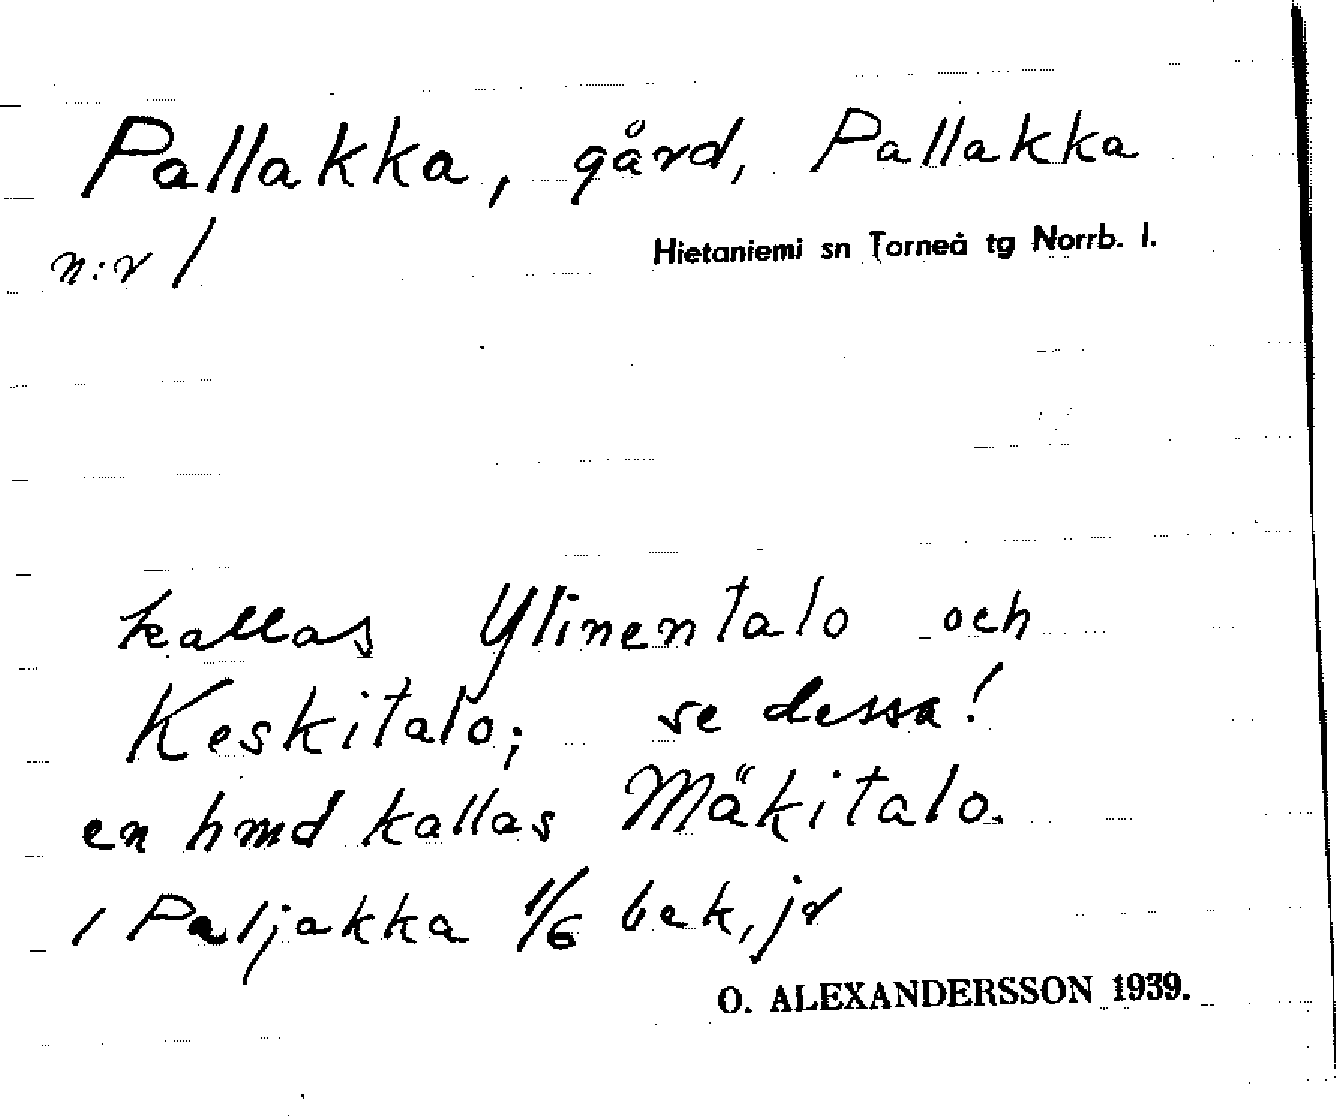 Pallakka, gård, Pallakka
n:r 1
Hietaniemi sn Torneå tg Norrb. l.
kallas Ylinentalo och
Keskitalo; se dessa!
en hmd kallas Mäkitalo.
1 Paljakka 1/6 bek, jr
O. ALEXANDERSSON 1939.